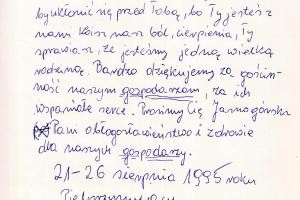 by ukłonić się przed Tobą, bo Ty jesteś z
nami Koisz nasz ból, cierpienia, Ty
sprawiasz, że jesteśmy jedną wielką
rodziną. Bardzo dziękujemy za gościn-
ność naszym gospodarzom, za ich
wspaniałe serce. Prosimy Cię Jasnogórska
Pani o błogosławieństwo i zdrowie
dla naszych gospodarzy.
21-26 sierpnia 1995 roku